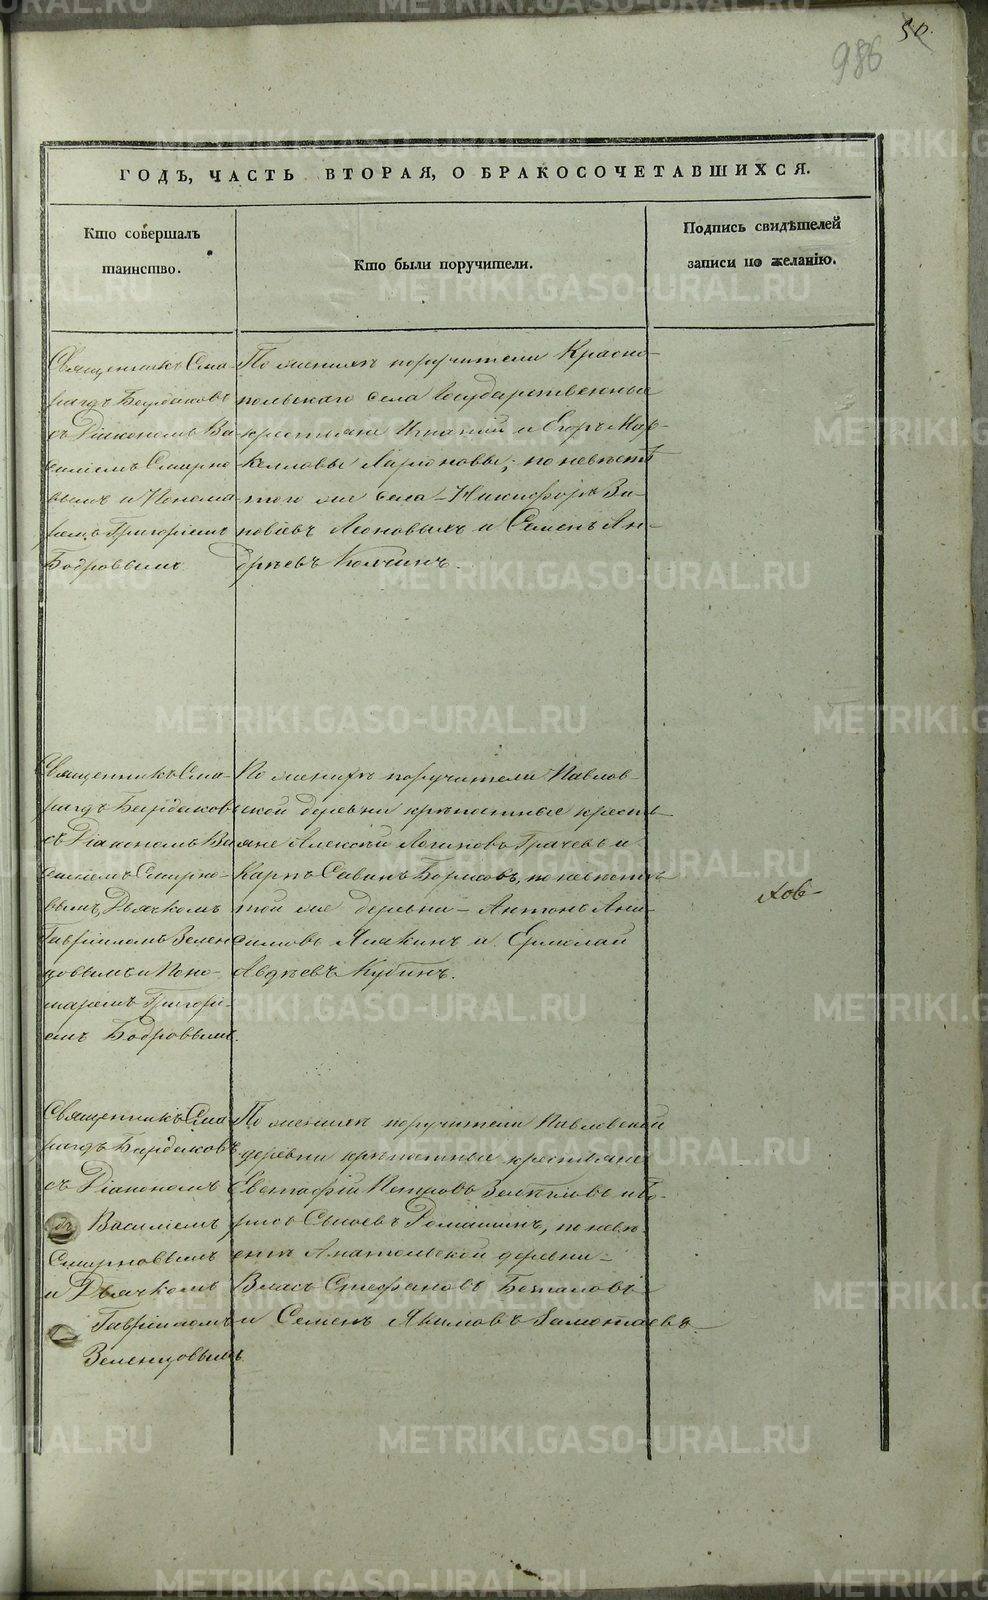 50.
986
ГОДЪ, ЧАСТЬ ВТОРАЯ, О БРАКОСОЧЕТАВШИХСЯ.
Кто совершалъ
таинство.
Кто были поручители.
Подпись свидѣтелей
записи по желанію.
Священникъ Сма-
рагдъ Бирдаковъ
съ Діакономъ Ва-
силіемъ Смирно-
вымъ и Понома-
ремъ Григоріемъ
Бодровымъ
По женихѣ поручители Красно-
польскаго села Государственные
крестьяне Игнатій и Егоръ Мар-
келловы Ларіоновы; по невѣстѣ
того же села – Никифоръ Зи-
новіевъ Леоновыхъ и Семенъ Ан-
дреевъ
Священникъ Сма-
рагдъ Бирдаковъ
съ Діакономъ Ва-
силіемъ Смирно-
вымъ, Дьячкомъ
Гавріиломъ Зелен
цовымъ и Поно-
маремъ Григорі-
емъ Бодровымъ.
По женихѣ поручители Павлов-
ской деревни крѣпостные кресть-
яне Алексѣй Логиновъ Грачевъ и
Карпъ Савинъ Борисовъ, по невѣстѣ
той же деревни – Антонъ Ани-
симовъ и Ермолай
Авдѣевъ Кубинъ.
Священникъ Сма
рагдъ Бирдаковъ
съ Діакономъ
Василіемъ
Смирновымъ
и Дьячкомъ
Гавріиломъ
Зеленцовымъ
По женихѣ поручители Павловской
деревни крѣпостные крестьяне
Евстафій Петровъ и Бо-
рисъ Сысоевъ Ромашинъ, по невѣ-
стѣ Анатольской деревни –
Власъ Стефановъ
и Семенъ Якимовъ
METRIKI.GASO-URAL.RU